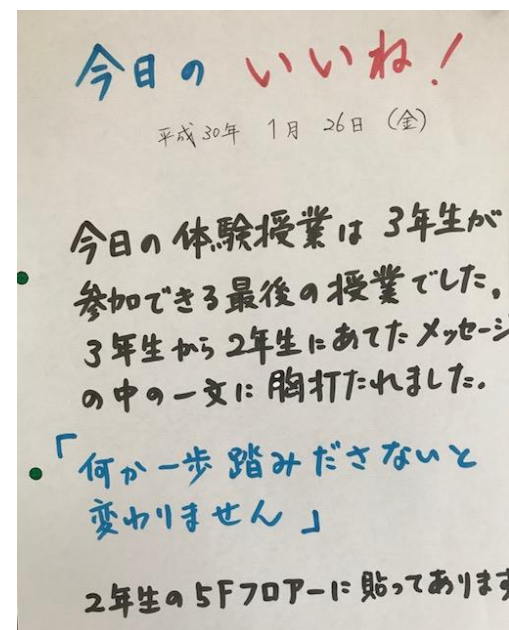 今日の いいね!
平成30年 1月 26日 (金)
今日の体験授業は 3年生が
参加できる最後の授業でした。
3年生から2年生にあてたメッセージ
の中の一文に 胸打たれました。
「何か一歩 踏みださないと
変わりません」
2年生の5Fフロアーに貼ってあります